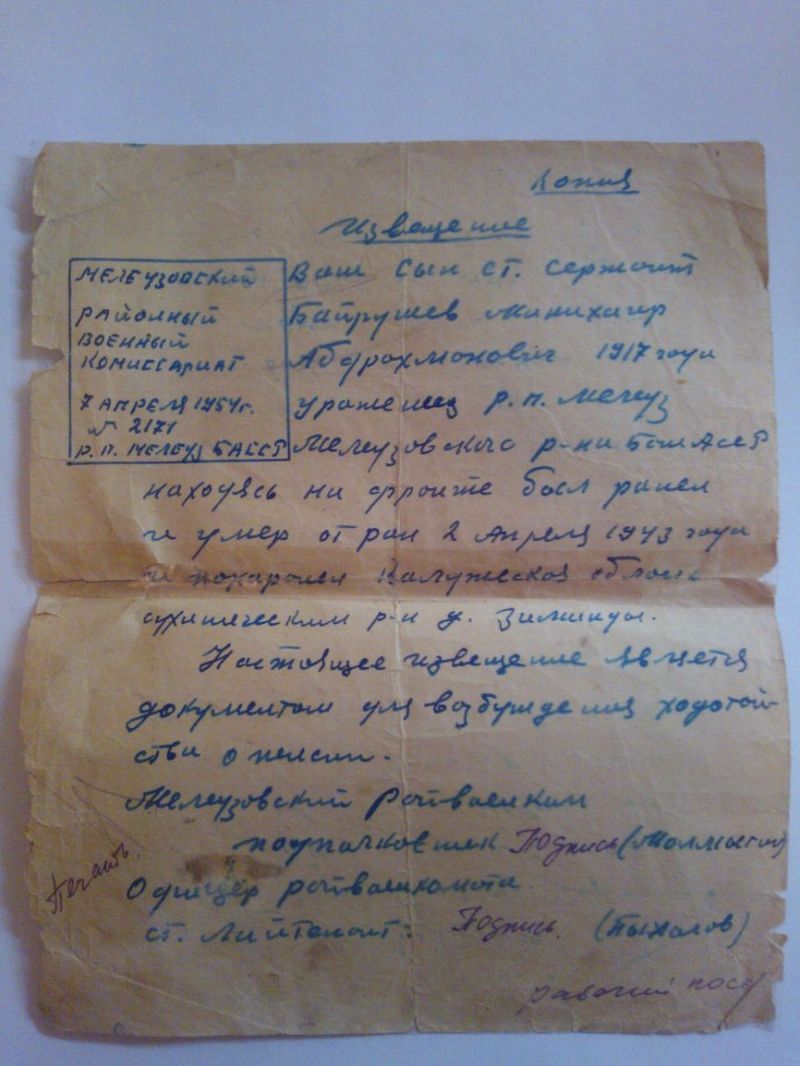 Копия
Извещение
МЕЛЕУЗОВСКИЙ
РАЙОННЫЙ
ВОЕННЫЙ
КОМИССАРИАТ
7 АПРЕЛЯ 1954г.
№ 2171
Р.П. МЕЛЕУЗ БАССР
Ваш сын ст. сержант
Байрушев Минихаир
Абдрахманович 1917 года
уроженец р.п. Мелеуз
Мелеузовского р-на БашАССР
находясь на фронте был ранен
и умер от ран 2 Апреля 1943 года
и похоронен Калужская область
сухиническим р-н д. Зимницы.
Настоящее извещение является
документом для возбуждения ходатай-
ства о пенсии.
Мелеузовский райвоенком
подполковник Подпись
Офицер райвоенкомата
ст. лейтенант: Подпись. (Пыхалов)
Печать.
рабочий